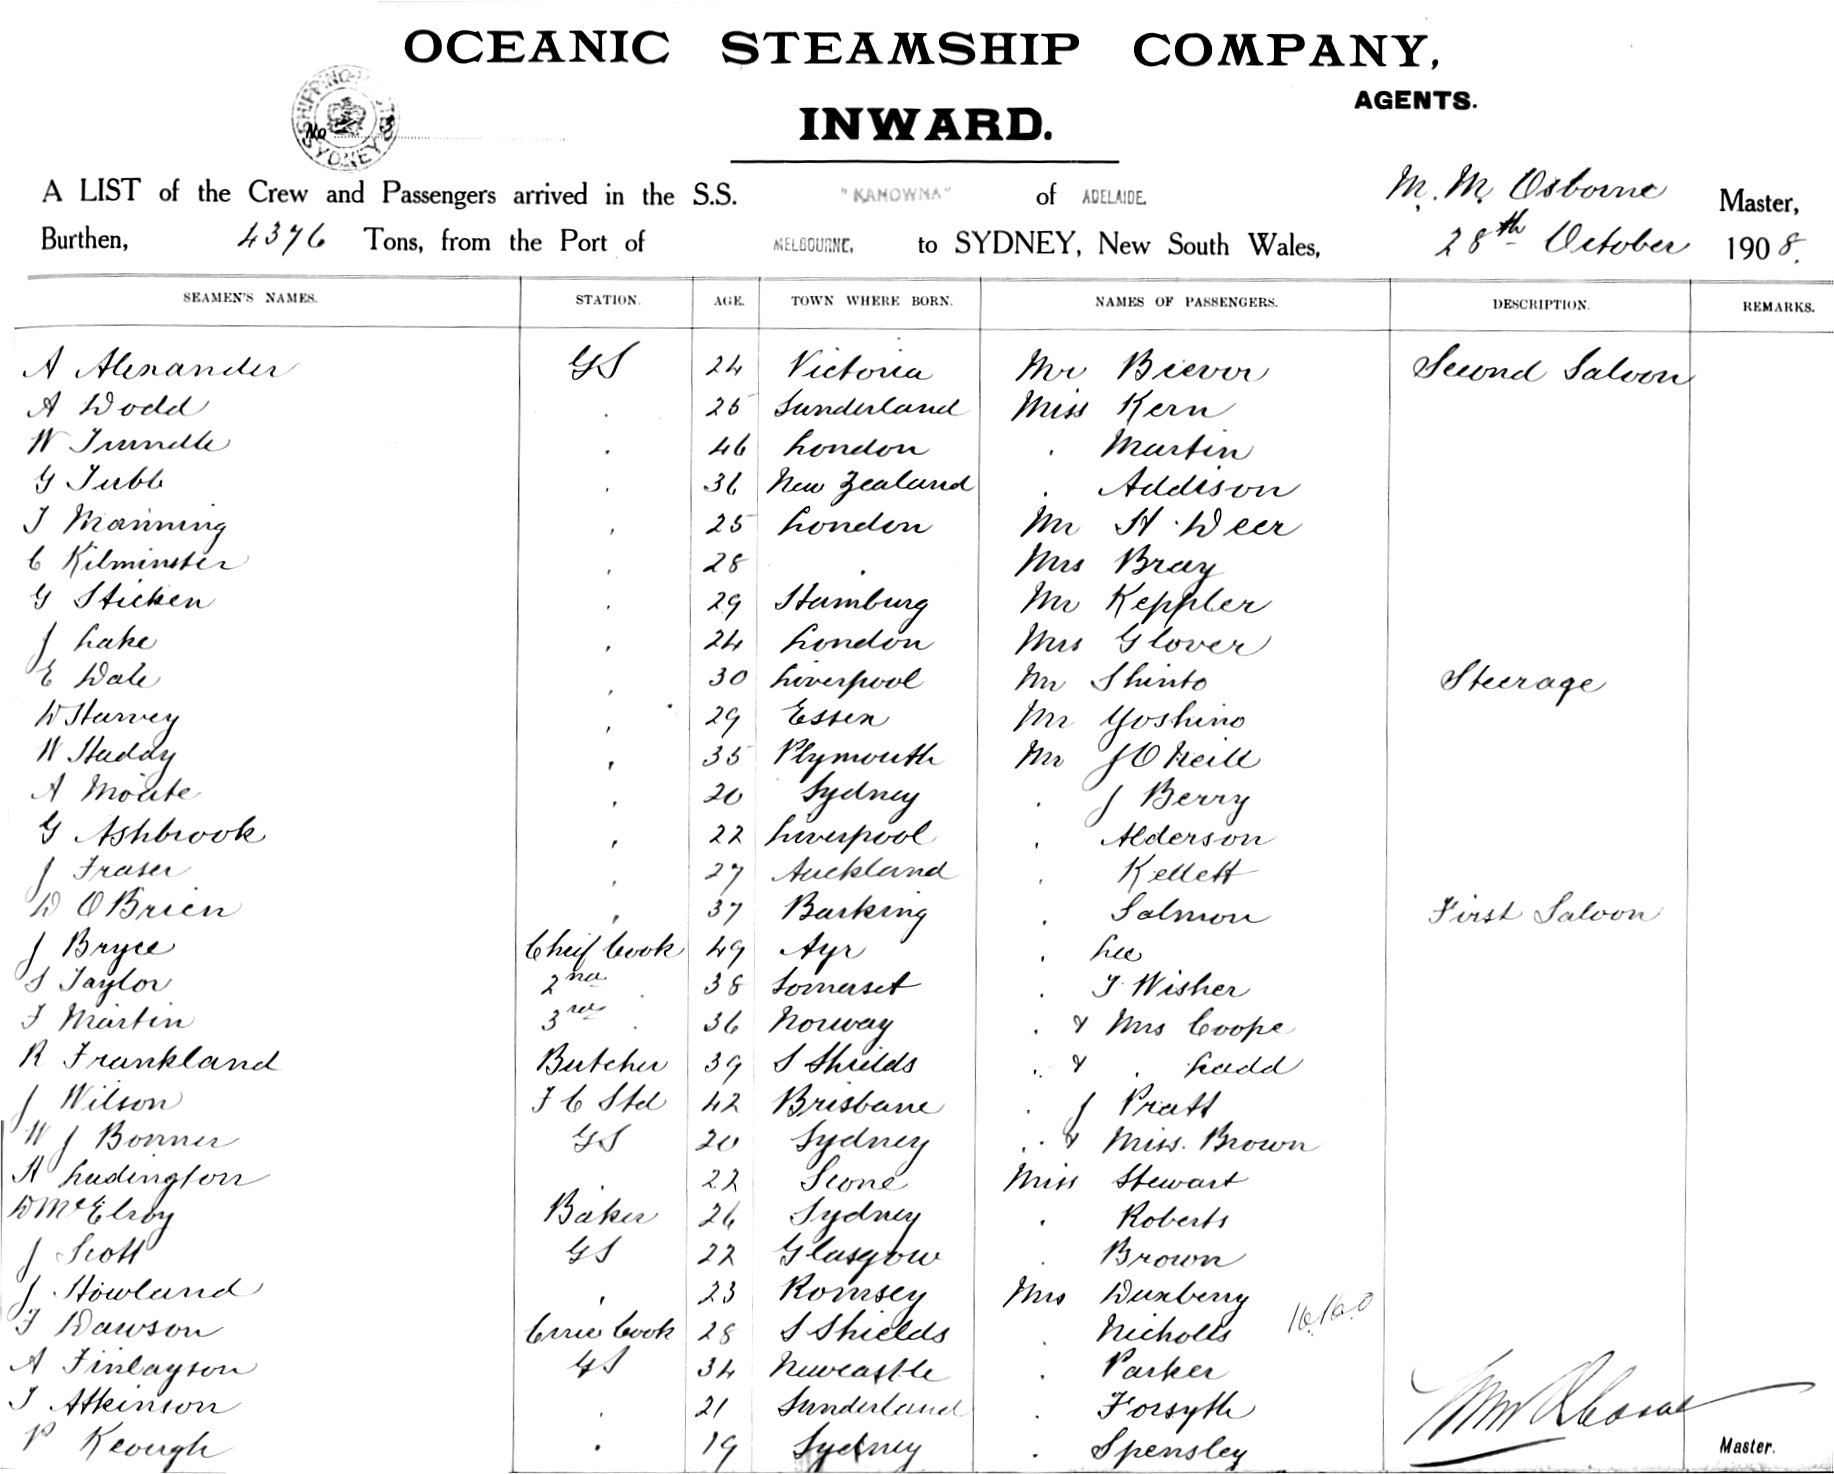 OCEANIC STEAMSHIP COMPANY,
AGENTS.
SHIPPING SYDNEY No
INWARD.
A LIST of the Crew and Passengers arrived in the S.S. "KANOWNA" of ADELAIDE. M. M. Osborne Master,
Burthen, 4376 Tons, from the Port of MELBOURNE, to SYDNEY, New South Wales, 28th October 1908.
SEAMEN'S NAMES. STATION. AGE. TOWN WHERE BORN. NAMES OF PASSENGERS. DESCRIPTION. REMARKS.
A Alexander GS 24 Victoria Mr Biever Second Saloon
A Dodd . 25 Sunderland Miss Kern
W Trundle . 46 London . Martin
G Tubb . 36 New Zealand . Addison
T Manning . 25 London Mr H Deer
C Kilminster . 28 . Mrs Bray
G Sticken . 29 Hamburg Mr Keppler
J Lake . 24 London Mrs Glover
E Dale . 30 Liverpool Mr Shinto Steerage
D Harvey . 29 Essex Mr Yoshino
W Haddy . 35 Plymouth Mr J O Neill
A . 20 Sydney . J Berry
G Ashbrook . 22 Liverpool . Alderson
J Fraser . 27 Auckland . Kellett
D O Brien . 37 Barking . Salmon First Saloon
J Bryce Cheif Cook 49 Ayr . Lee
S Taylor 2nd . 38 Somerset . T Wisher
F Martin 3rd . 36 Norway . & Mrs Coope
R Frankland Butcher 39 S Shields . & . Ladd
J Wilson F C Std 42 Brisbane . J Pratt
W J Bonner GS 20 Sydney . & Miss. Brown
A Ludington . 22 Scone Miss Stewart
D McElroy Baker 26 Sydney . Roberts
J Scott GS 22 Glasgow . Brown
J Howland . 23 Romsey Mrs Duxberry
T Dawson Crew Cook 28 S Shields . Nicholls
A Finlayson GS 34 Newcastle . Parker
T Atkinson . 21 Sunderland . Forsyth
P Keough . 19 Sydney . Spensley
Master.